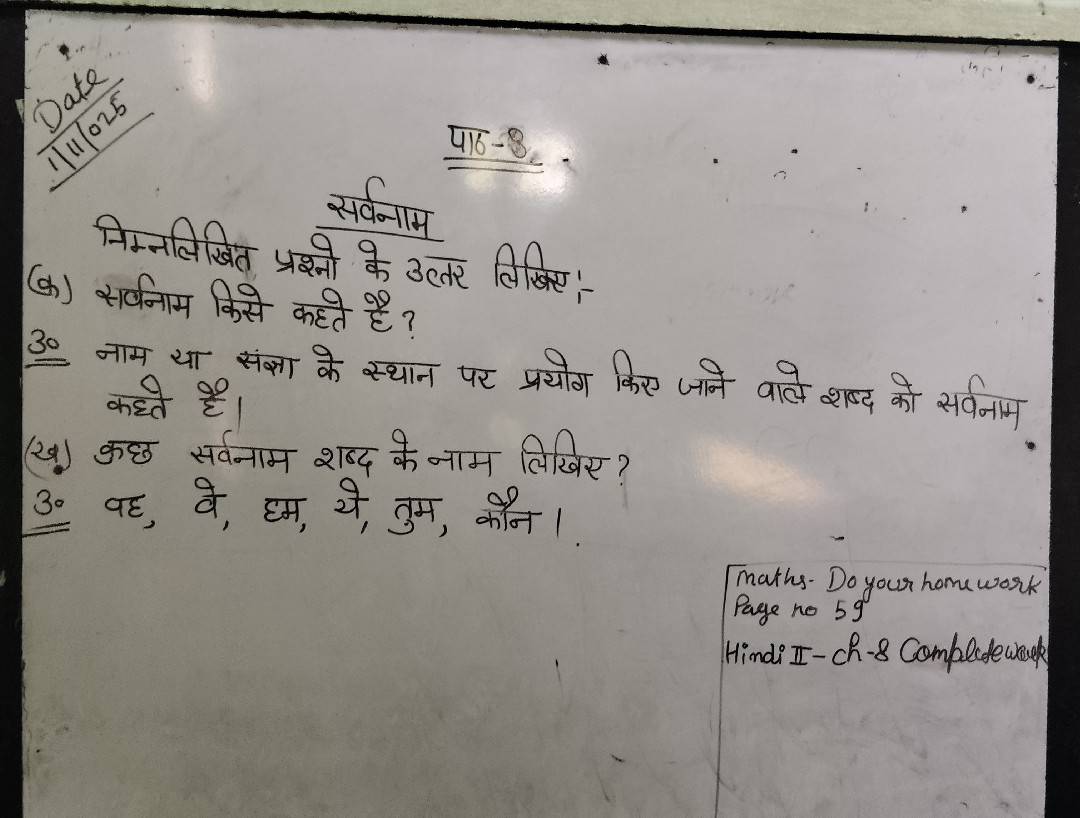 Date
1/11/025
पाठ-8
सर्वनाम
निम्नलिखित प्रश्नो के उत्तर लिखिए:-
(क) सर्वनाम किसे कहते है?
उ० नाम या संज्ञा के स्थान पर प्रयोग किए जाने वाले शब्द को सर्वनाम
कहते है।
(ख) कुछ सर्वनाम शब्द के नाम लिखिए?
उ० वह, वे, हम, ये, तुम, कौन।
maths- Do your home work
Page no 59
Hindi II - ch-8 Complete work